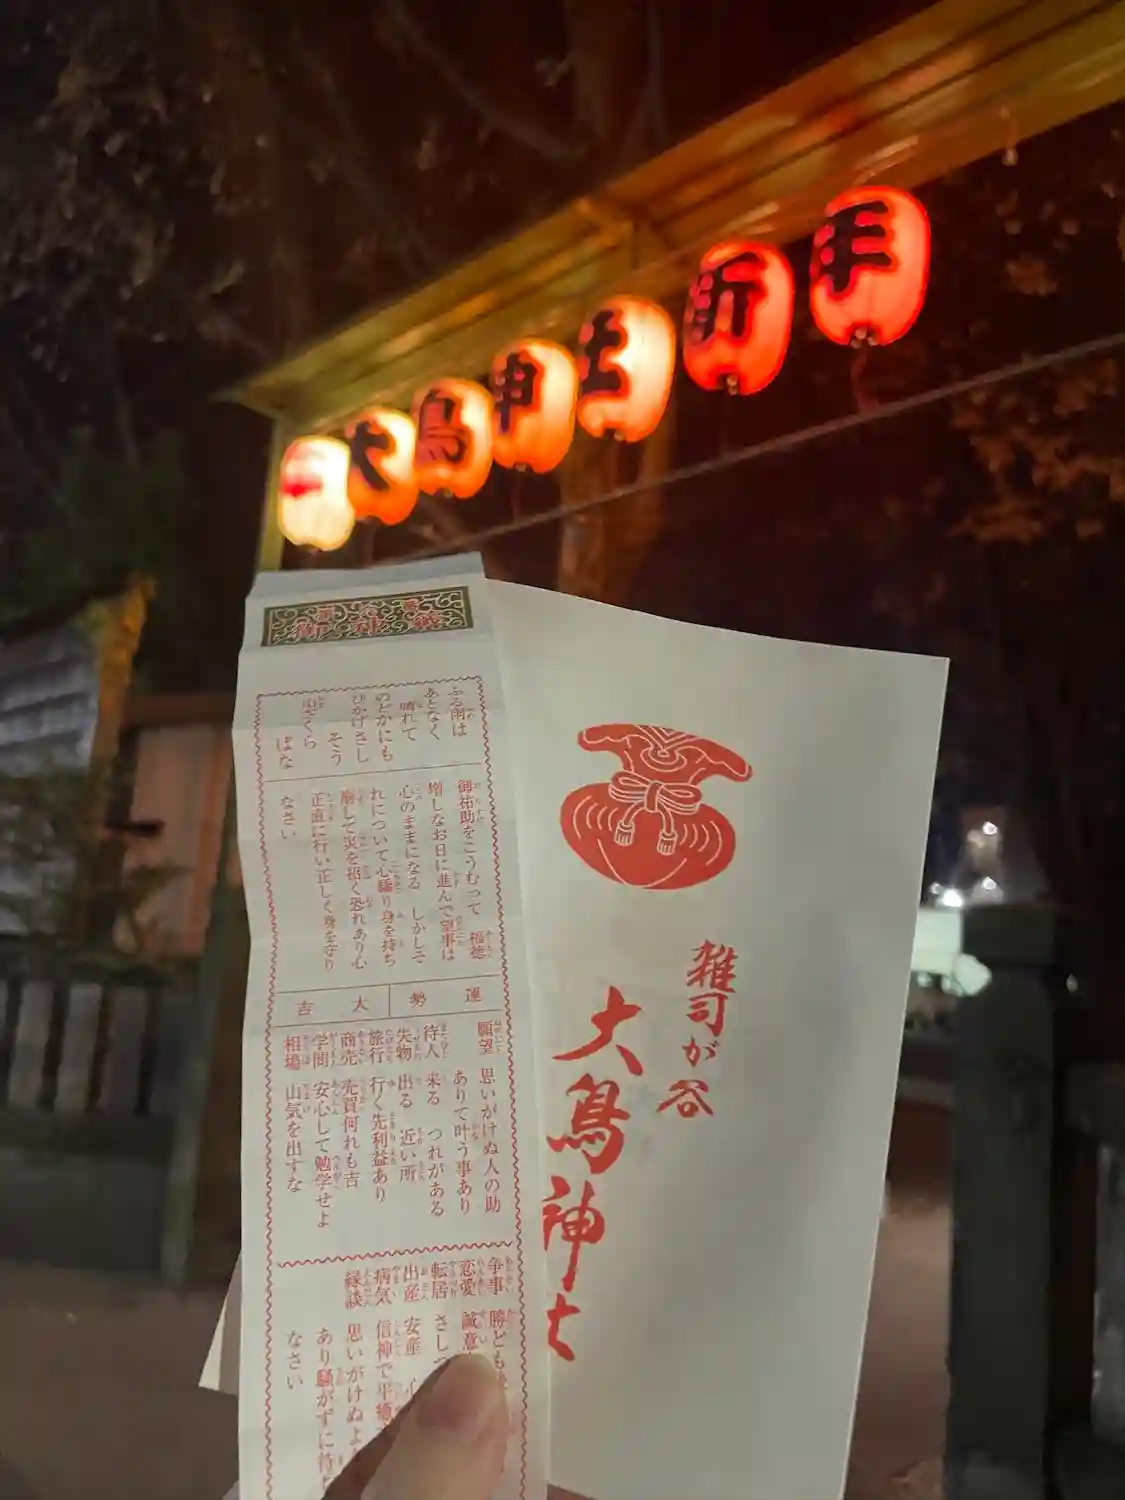 大鳥神社
御神籤
ふる雨は
あとなく
晴れて
のどかにも
ひかげさし
そう
山ざくら
ばな
御祐助をこうむって 福徳
増しなお日に進んで望事は
心のままになる しかしそ
れについて心驕り身を持ち
崩して災を招く恐れあり心
正直に行い正しく身を守り
なさい
運勢 大吉
願望 思いがけぬ人の助
ありて叶う事あり
待人 来る つれがある
失物 出る 近い所
旅行 行く先利益あり
商売 売買何れも吉
学問 安心して勉学せよ
相場 山気を出すな
争事 勝ども
恋愛 誠意
転居 さし
出産 安産
病気 信神で平癒
縁談 思いがけぬ
あり騒がずに待
なさい
雑司が谷
大鳥神社